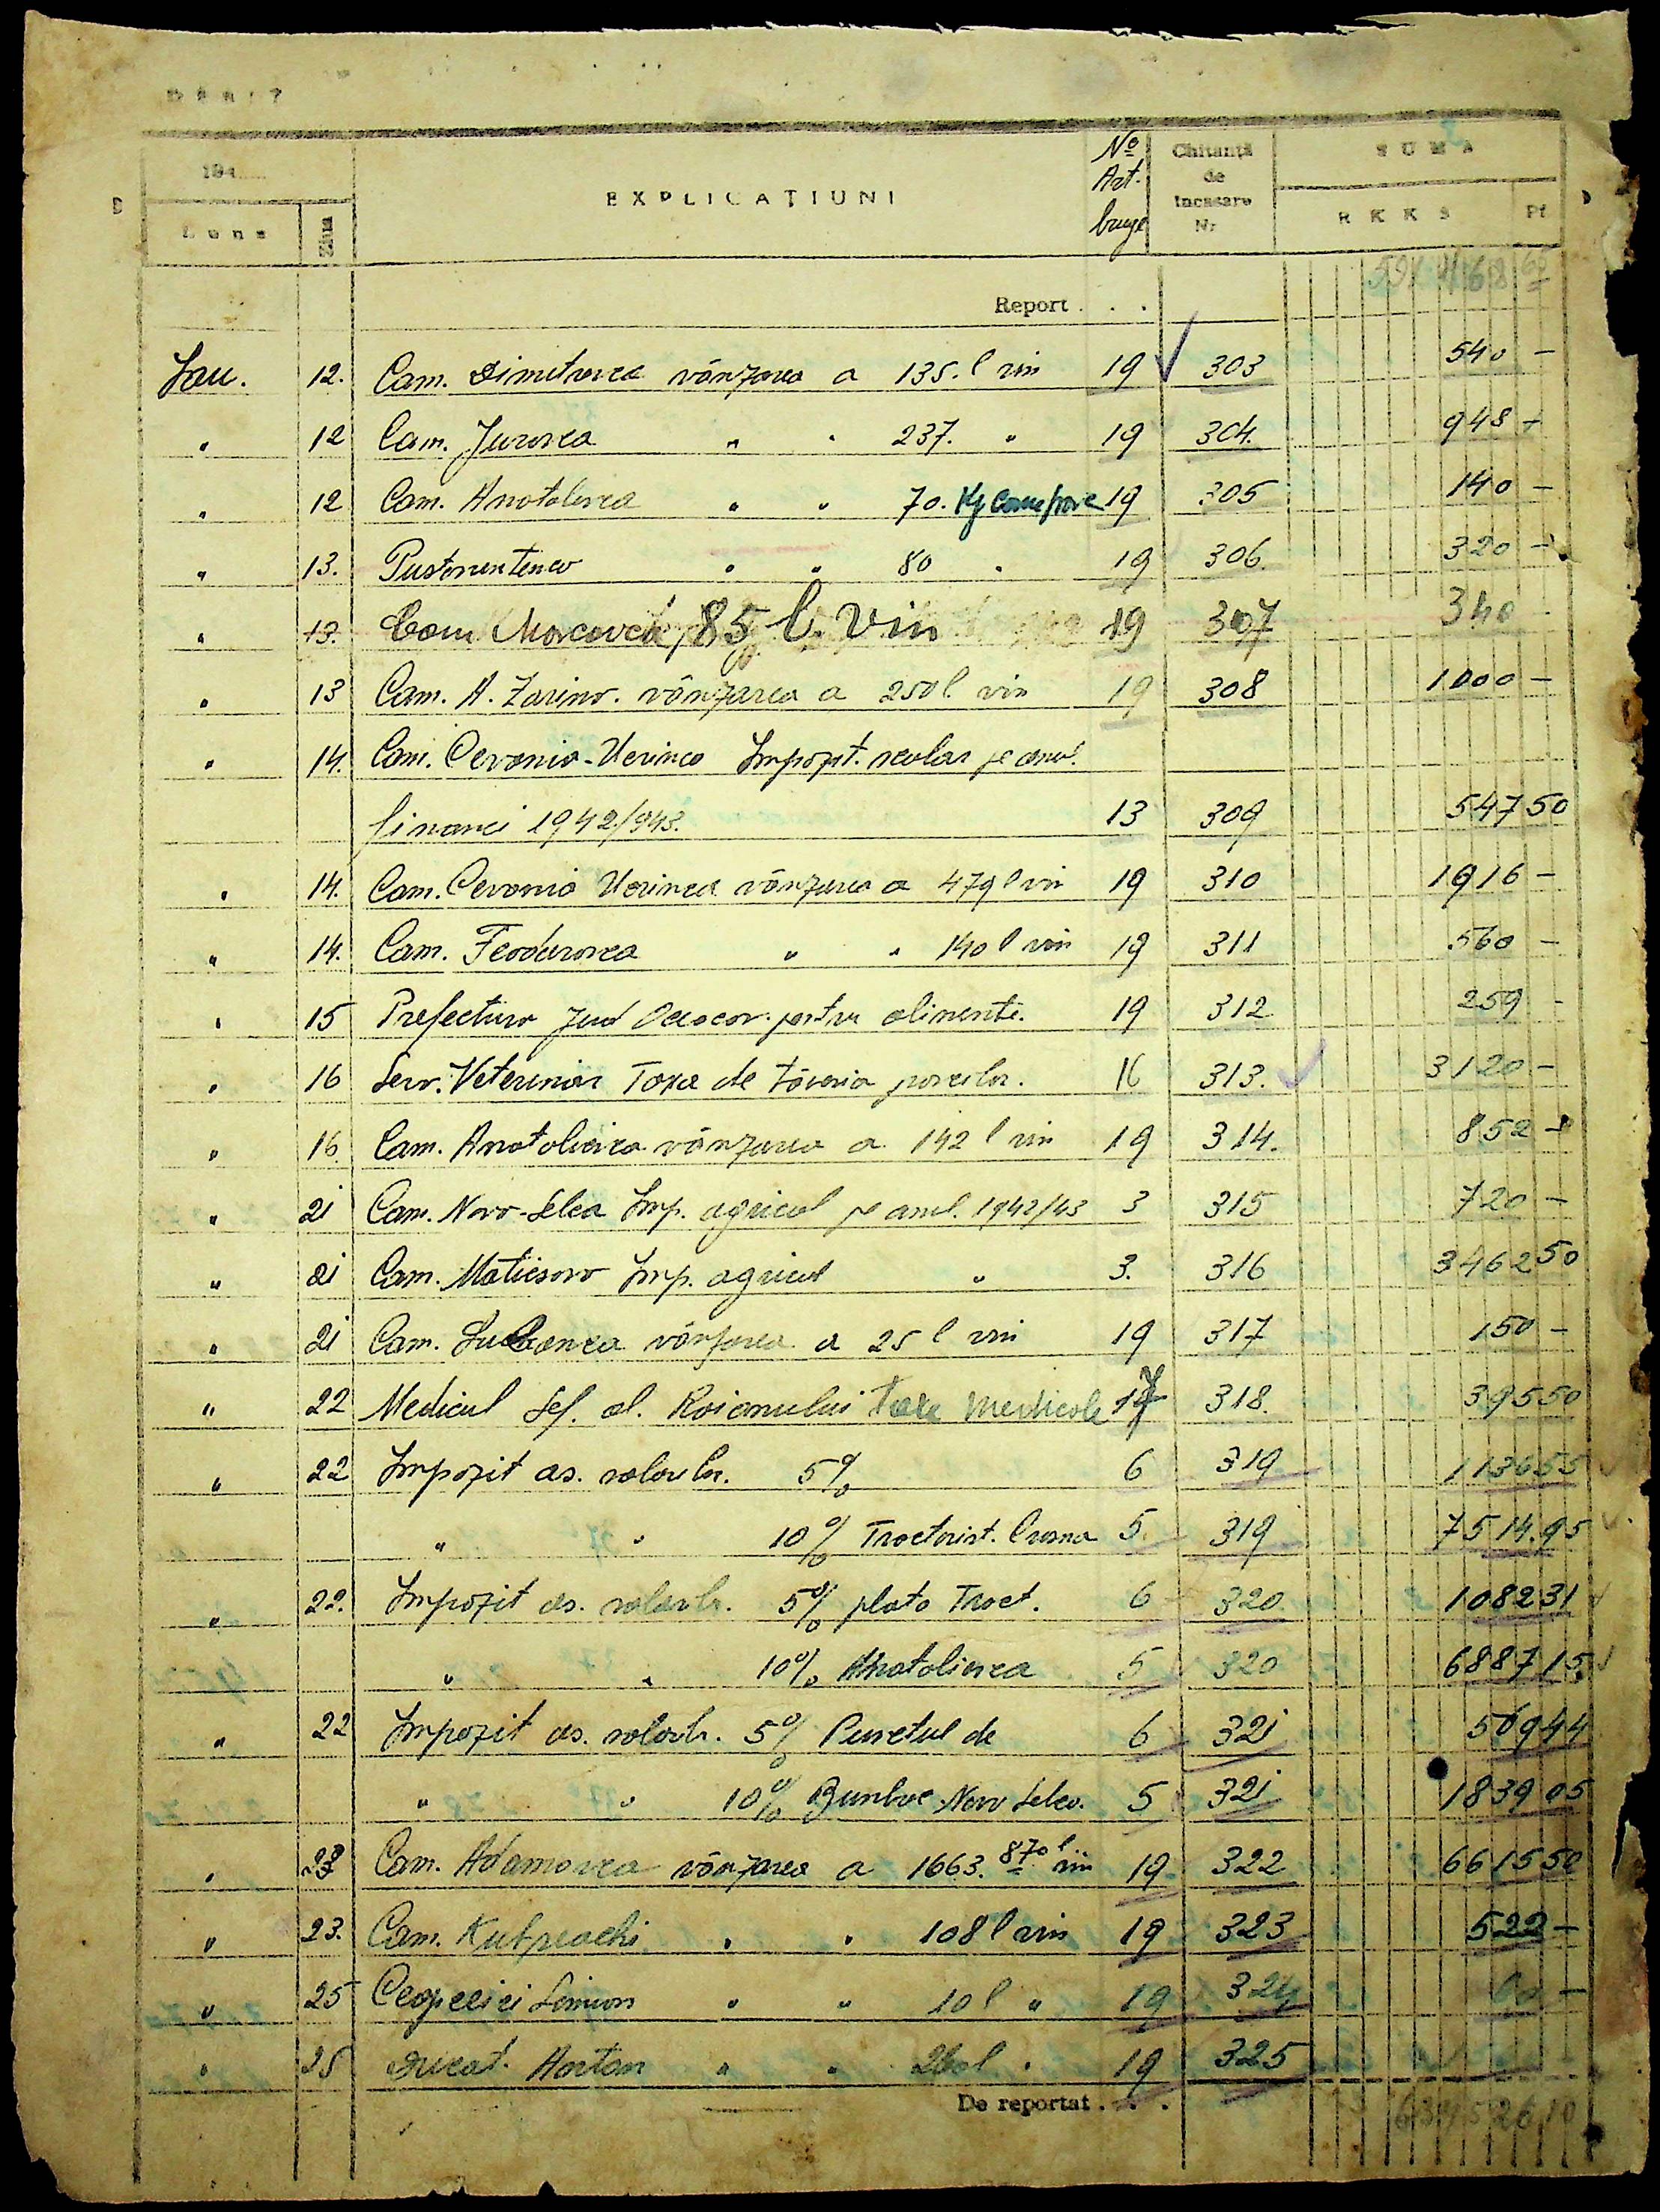 Debit
194
Luna Ziua EXPLICAȚIUNI No Art. buge Chitanță de Incasare Nr. SUMA RKKS Pf
Report . . .
Ian. 12. Com. Dimitrovca vânzarea a 135. l vin 19 303 540 —
" 12 Com. Jurovca " " 237. " 19 304. 948 —
" 12 Com. Anatolievca " " 70. Kg 19 305 140 —
" 13. " " 80 " 19 306. 320 —
" 13. Com. Marcovca 85 l. vin 19 307 340 —
" 13 Com. A. Zarino. vânzarea a 250 l. vin 19 308 1000 —
" 14. Com. Impozit. scolar pe anul.
financi 1942/943. 13 309 547 50
" 14. Com. vânzarea a 479 l vin 19 310 1916 —
" 14. Com. Feodorovca " " 140 l vin 19 311 560 —
" 15 Prefectura Jud Oceacov. pentru alimente. 19 312 259 —
" 16 Serv. Veterinar Taxa de tăieria porcilor. 16 313. 3120 —
" 16 Com. Anatolievca vânzarea a 142 l vin 19 314. 852 —
" 21 Com. Novo-Selca Imp. agricol pe anul. 1942/43 3 315 720 —
" 21 Com. Matiesovo Imp. agricol " 3. 316 3462 50
" 21 Com. vânzarea a 25 l vin 19 317 150 —
" 22 Medicul Sef. al. Raionului Taxe Medicale 17 318. 395 50
" 22 Impozit as. salarilor. 5% 6 319 1136 55
" " 10% Tractorist. Crasna 5 319 7514.95
" 22. Impozit as. salarilr. 5% plata Tract. 6 320 1082 31
" " 10% Anatolievca 5 320 6887 15
" 22 Impozit as. salarilr. 5% Punctul de 6 321 509 44
" " 10% Bumbac Novo Selca. 5 321 1839 05
" 23 Com. Adamovca vânzarea a 1663.870 l vin 19 322 6615 50
" 23. Com. " " 108 l vin 19 323 522 —
" 25 Simion " " 10 l " 19 324 60 —
" 25 Anton " " 260 l " 19 325
De reportat . . .